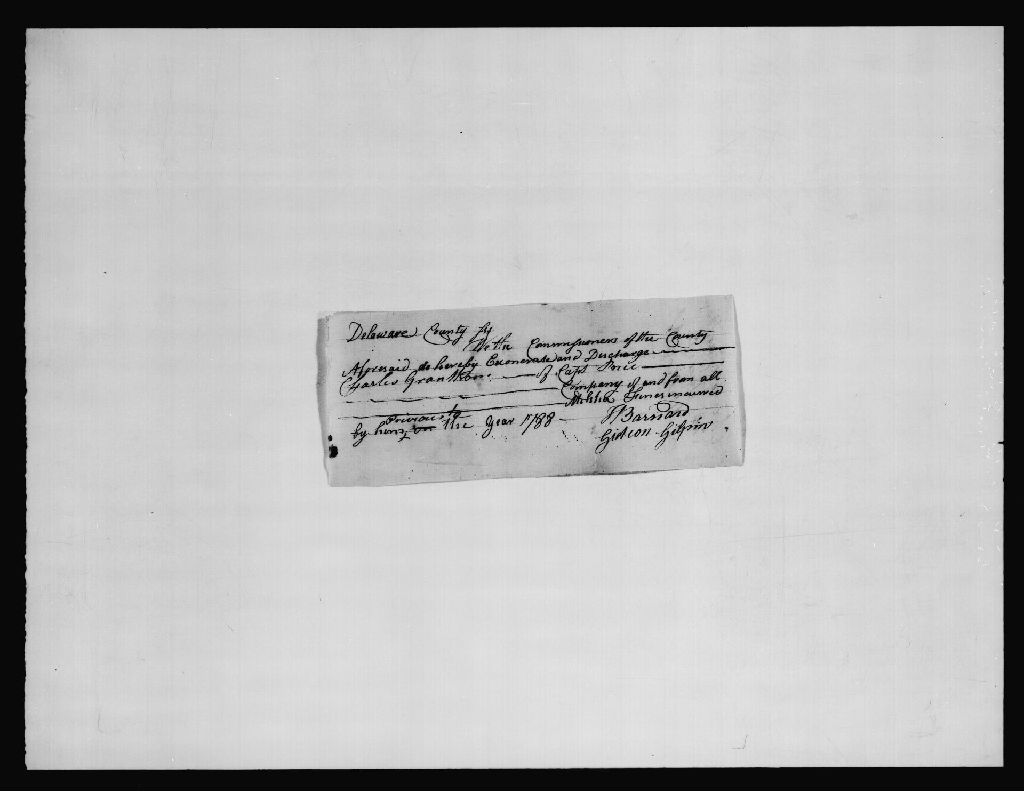 Delaware County ss
We the Commissioners of the County
Aforesaid do hereby Exonerate and Discharge
Charles Grantham of Capt Price
Company of and from all
Militia Fines incurred
Previous to
by him, in the Year 1788
J Barnard
Gideon Gilpin